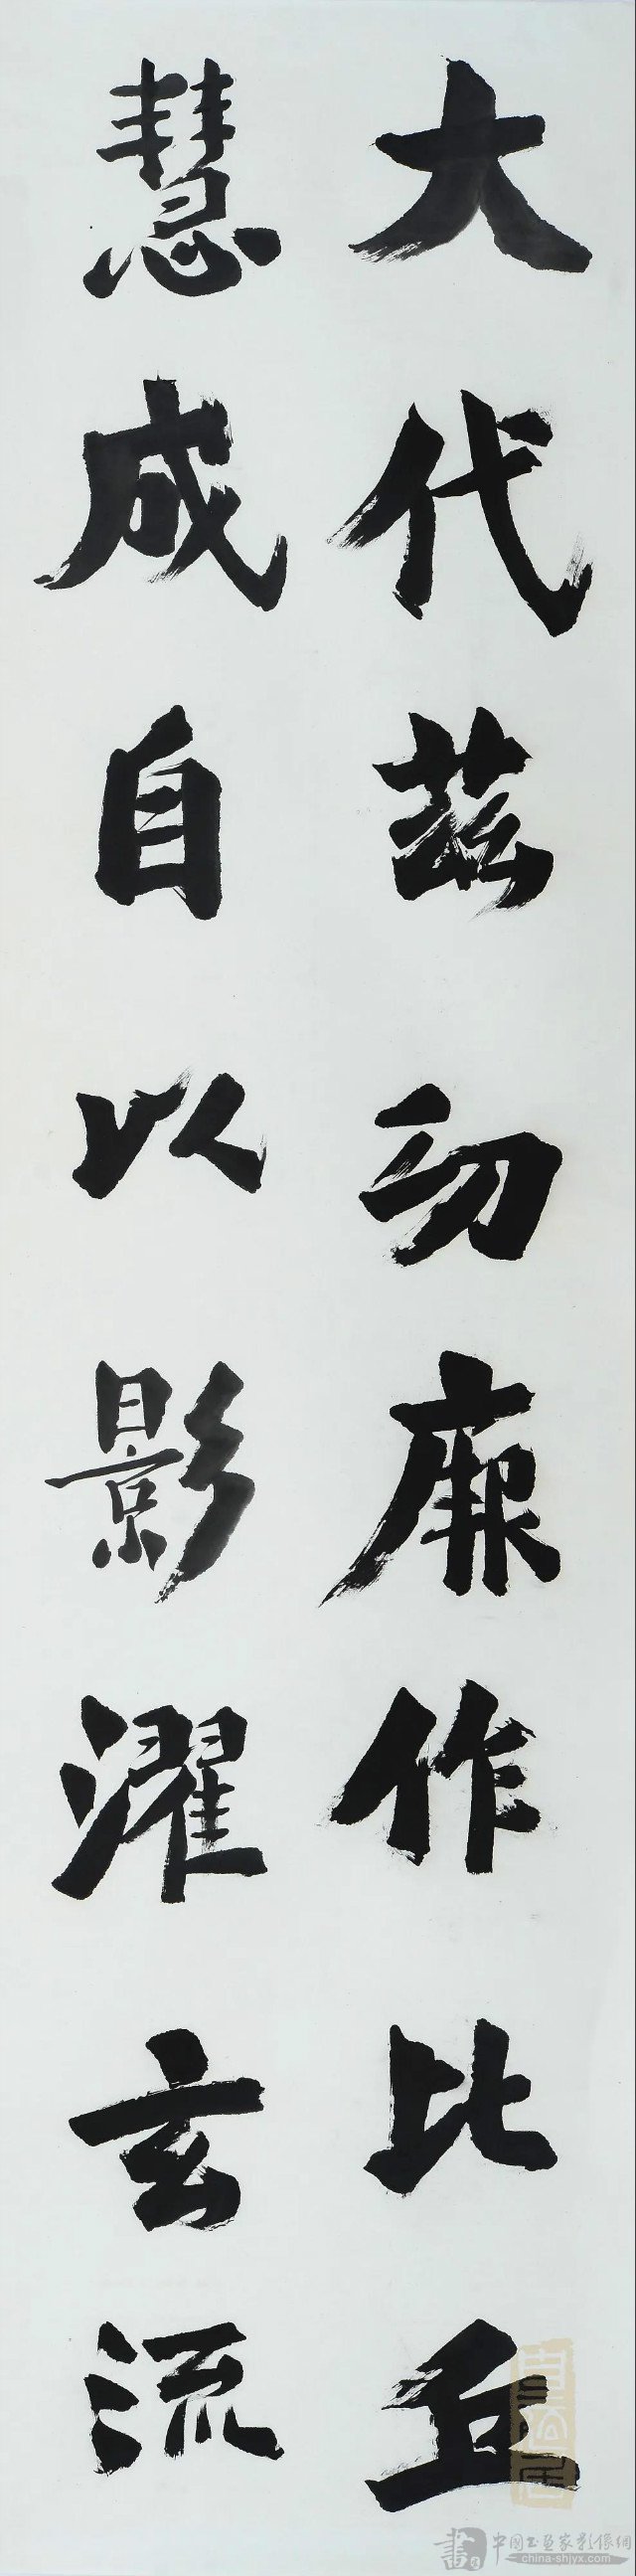 大代茲功厥作比丘
慧成自以影濯玄流
書
中國书画家影像網
china-shjyx.com